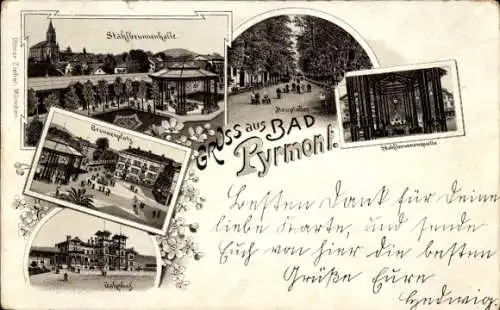 Stahlbrunnenhalle
Hauptallee
Brunnenplatz
Stahlbrunnenquelle
Gruss aus BAD
Pyrmont.
Bahnhof
Ottmar Zieher München.
Besten Dank für Deine
liebe Karte, und sende
Euch von hier die besten
Grüße Eure
Hedwig.